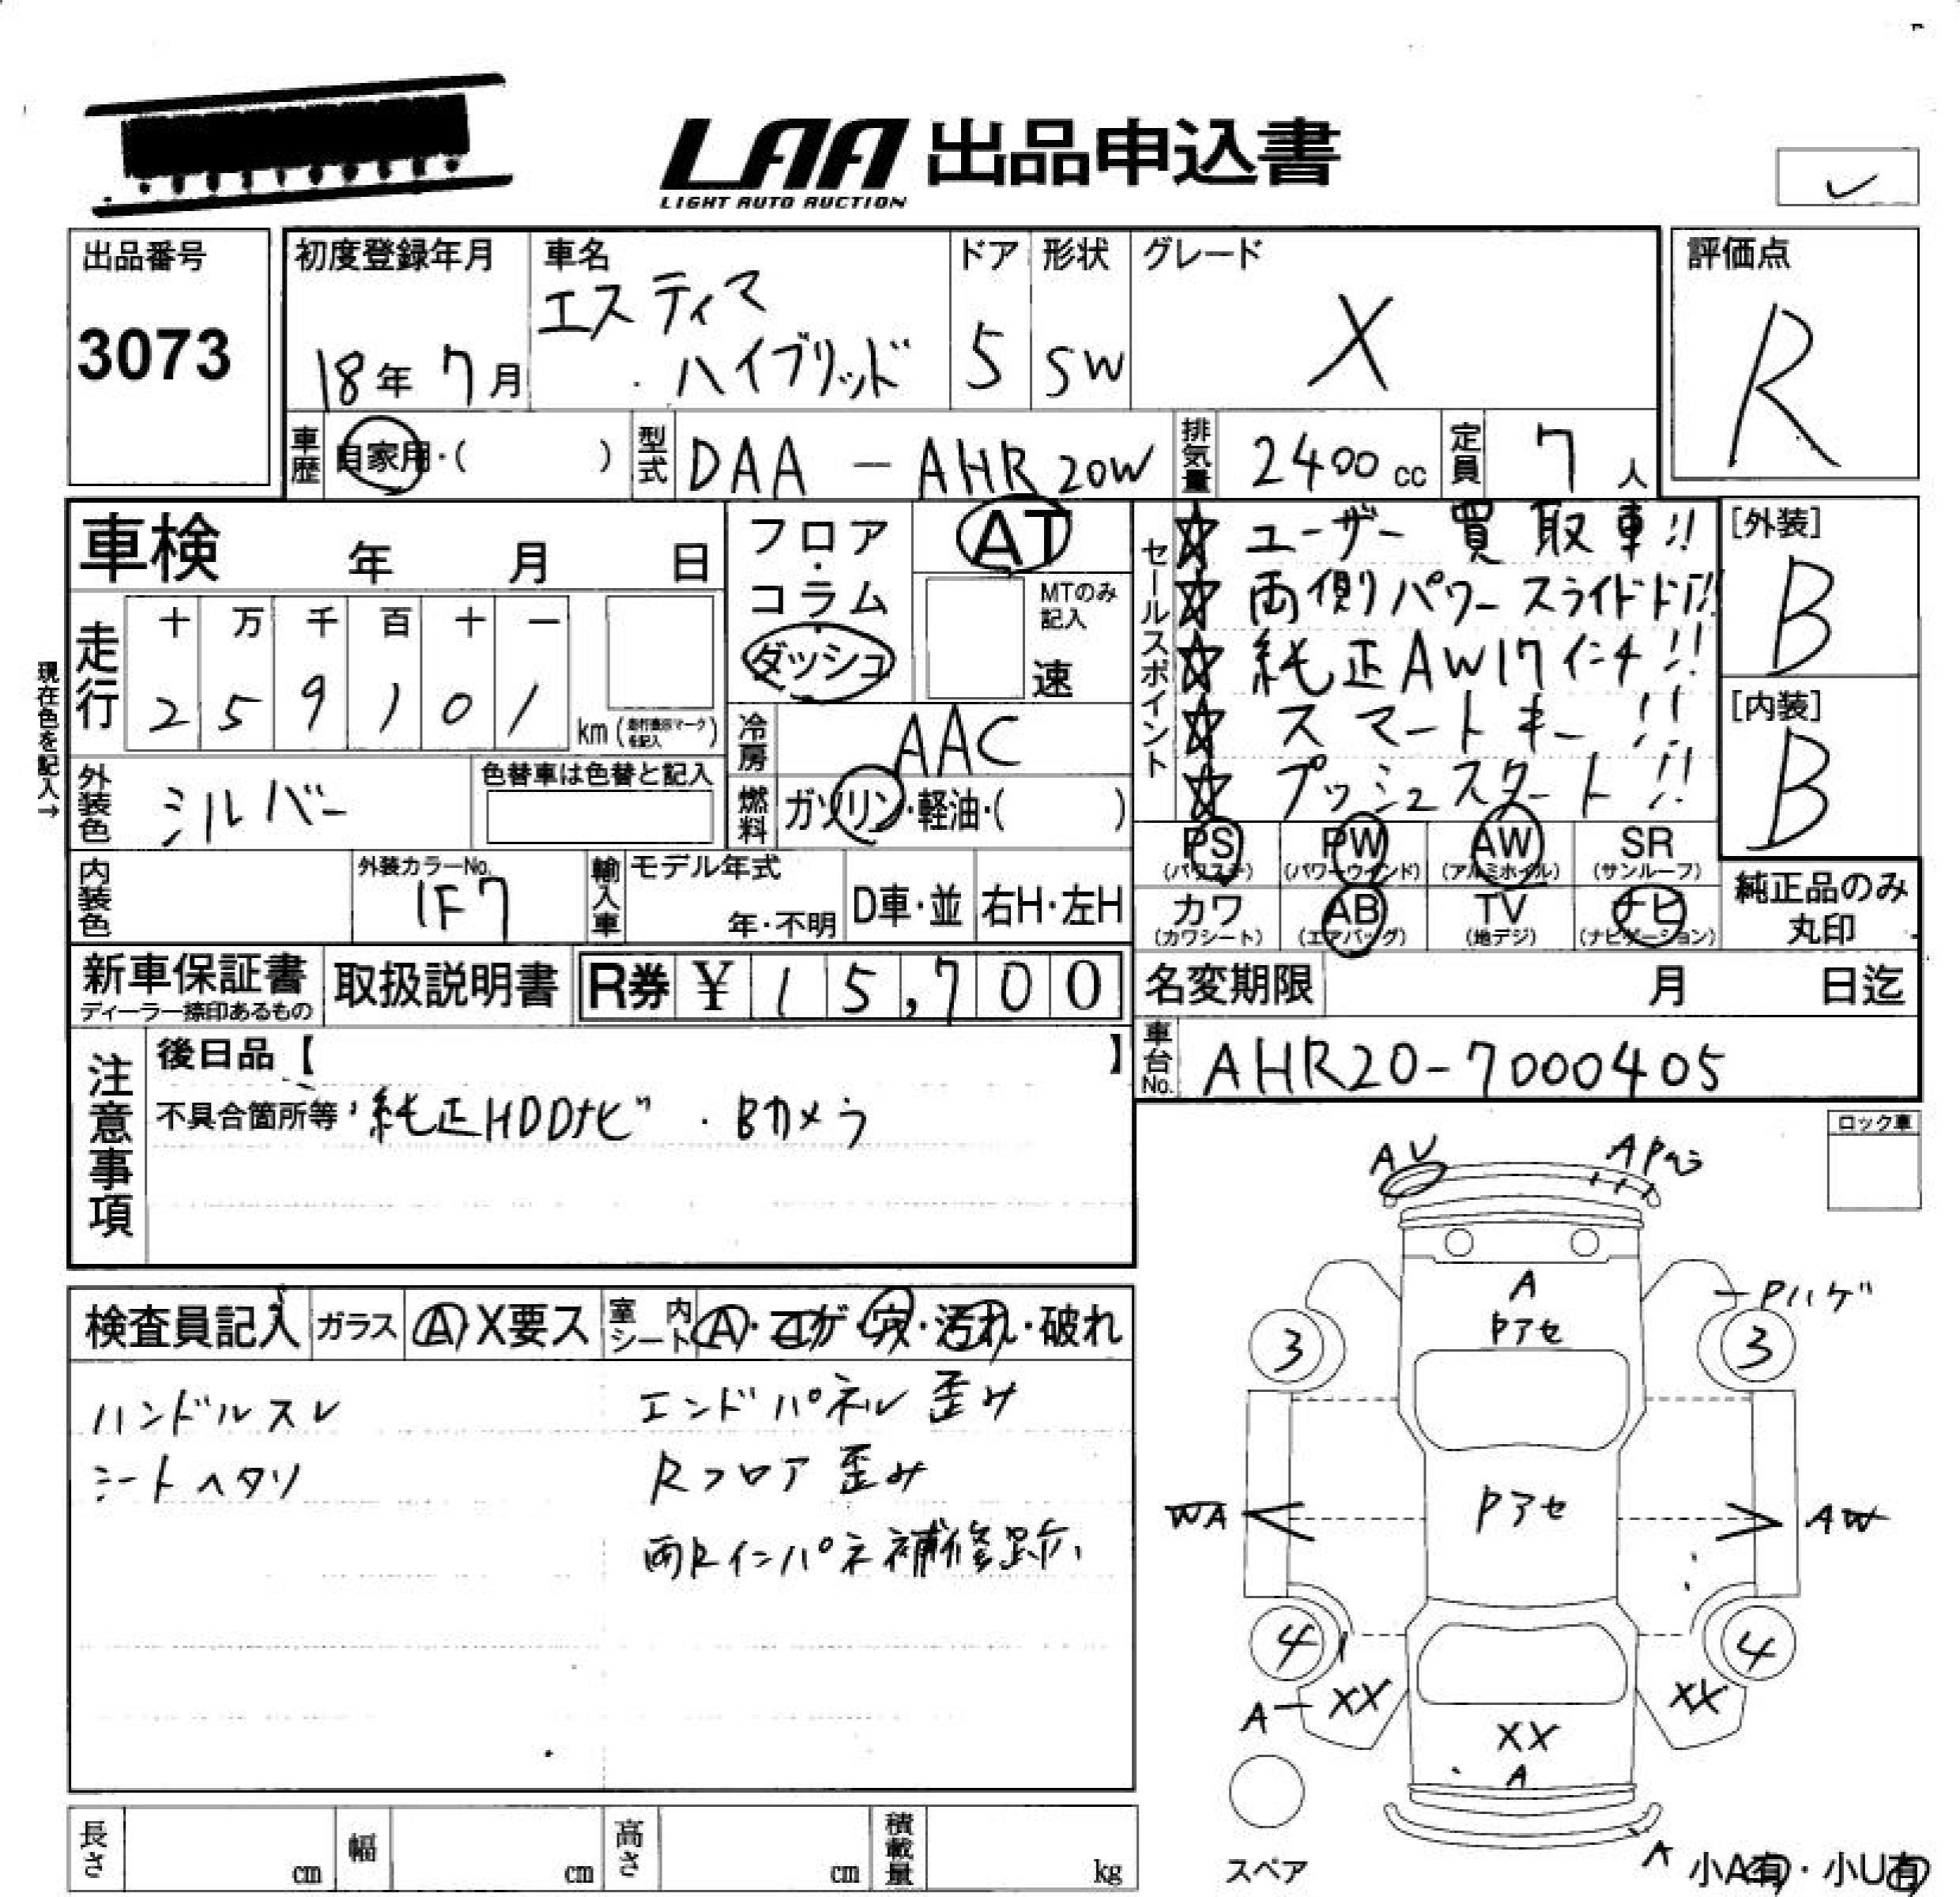 LAA 出品申込書
LIGHT AUTO AUCTION
出品番号
3073
初度登録年月
18年 7月
車名
エスティマ
ハイブリッド
ドア
5
形状
SW
グレード
X
評価点
R
車歴
自家用・( )
型式
DAA - AHR20W
排気量
2400 cc
定員
7 人
車検 年 月 日
フロア・コラム・ダッシュ
AT
MTのみ記入
速
セールスポイント
☆ ユーザー買取車!!
☆ 両側パワースライドドア!!
☆ 純正AW17インチ!!
☆ スマートキー!!
☆ プッシュスタート!!
[外装]
B
[内装]
B
現在色を記入→
走行
十 万 千 百 十 一
2 5 9 1 0 1
km (走行表示マークを記入)
冷房
AAC
外装色
シルバー
色替車は色替と記入
燃料
ガソリン・軽油・( )
PS
(パワステ)
PW
(パワーウインド)
AW
(アルミホイル)
SR
(サンルーフ)
カワ
(カワシート)
AB
(エアバッグ)
TV
(地デジ)
ナビ
(ナビゲーション)
純正品のみ
丸印
内装色
外装カラーNo.
1F7
輸入車
モデル年式
年・不明
D車・並
右H・左H
新車保証書
ディーラー捺印あるもの
取扱説明書
R券 ¥ 15,700
名変期限 月 日迄
車台No.
AHR20-7000405
注意事項
後日品【 】
不具合箇所等・純正HDDナビ ・Bカメラ
ロック車
検査員記入
ガラス
A X要ス
室内シート
A・コゲ・穴・汚れ・破れ
ハンドルスレ
シートヘタリ
エンドパネル歪み
Rフロア歪み
両Rインパネ補修跡
AU
A
Pアセ
Pハゲ
3
3
Pアセ
WA
AW
4
4
A
XX
XX
XX
A
スペア
A
小A有・小U有
長さ cm
幅 cm
高さ cm
積載量 kg